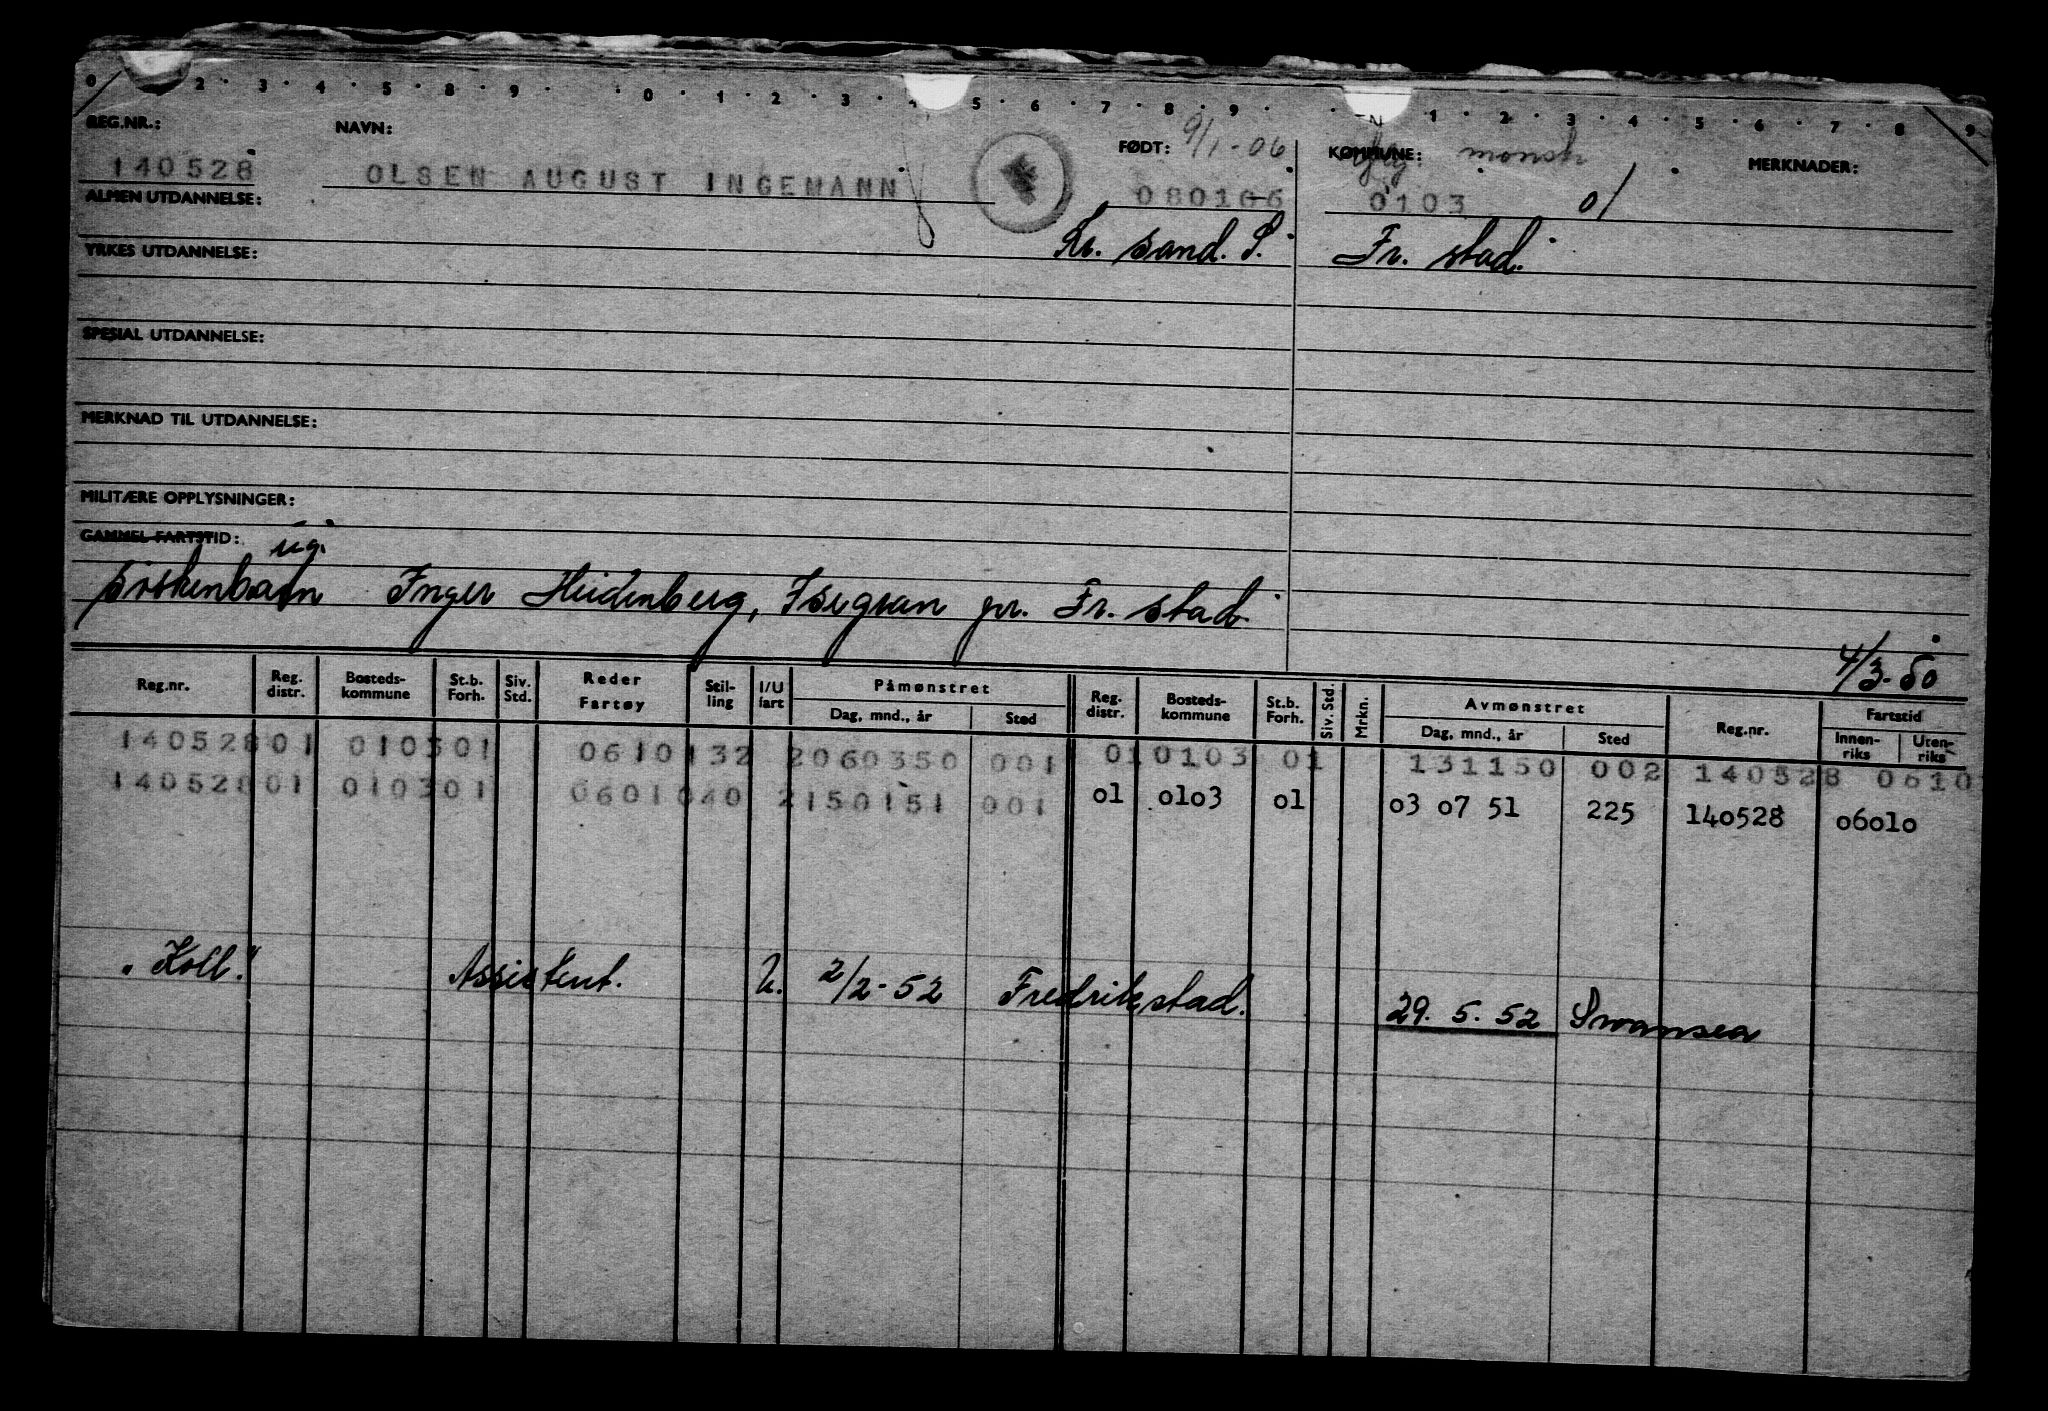 0 2 3 4 5 8 9 0 1 2 3 4 5 6 7 8 9 1 2 3 4 5 6 7 8 9
REG.NR.: NAVN: FØDT: 9/1-06 KOMMUNE: MERKNADER:
140528 OLSEN AUGUST INGEMANN 080106 0103 01
ALMEN UTDANNELSE:
Kr. sand. S. Fr. stad.
YRKES UTDANNELSE:
SPESIAL UTDANNELSE:
MERKNAD TIL UTDANNELSE:
MILITÆRE OPPLYSNINGER:
GAMMEL FARTSTID:
ug.
Inger Heidenberg, Isegran pr. Fr. stad.
4/3-50
Reg.nr. Reg. distr. Bosteds-kommune St.b. Forh. Siv. Std. Reder Fartøy Stil-ling I/U fart Påmønstret Dag, mnd., år Sted Reg. distr. Bosteds-kommune St.b. Forh. Siv. Std. Mrkn. Avmønstret Dag, mnd., år Sted Reg.nr. Fartstid Innen-riks Uten-riks
140528 01 0103 01 0610 132 2 060350 001 01 0103 01 131150 002 140528 0610
140528 01 0103 01 0601 040 2 150151 001 01 0103 01 03 07 51 225 140528 06010
"Koll." Assistent. U. 2/2-52 Fredrikstad. 29. 5. 52 Swansea